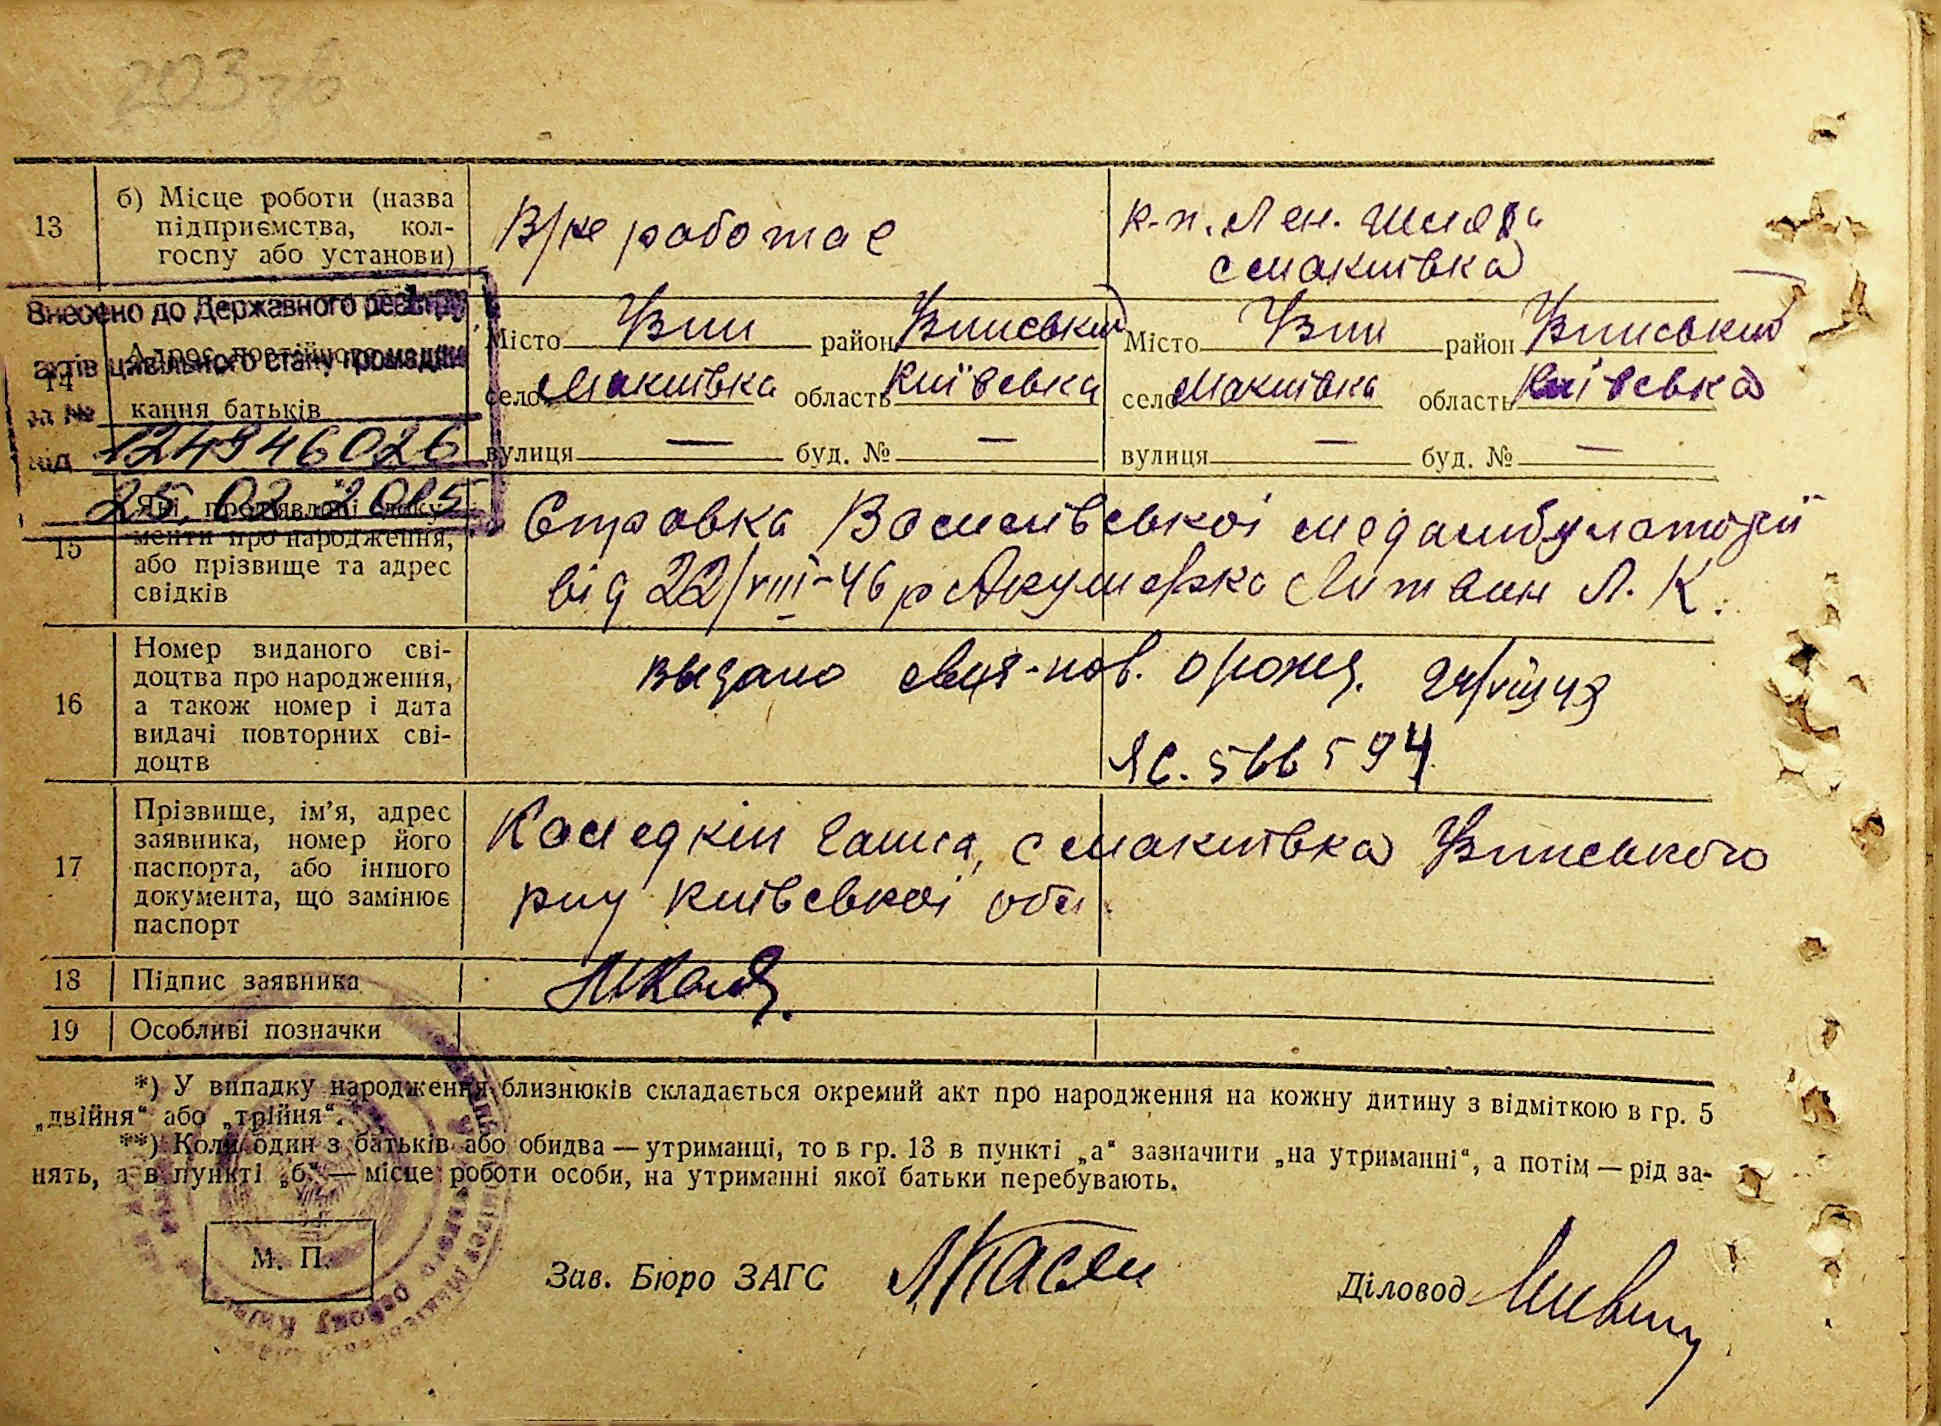 203 зв
13
б) Місце роботи (назва
підприємства, кол-
госпу або установи)
В/не работає
к-п. Лен. Шлях
с Макіївка
Внесено до Державного реєстру
актів цивільного стану громадян
за №
124946026
від
25. 02. 2015
14
Адрес постійного
кання батьків
Місто Узин район Узинський
село Макіївка область Київська
вулиця — буд. № —
Місто Узин район Узинський
село Макіївка область Київська
вулиця — буд. № —
15
Які пред'явлені доку-
менти про народження,
або прізвище та адрес
свідків
Справка Василівської медамбулаторії
від 22/VIII-46 р Акушерка Литвин Л. К.
16
Номер виданого сві-
доцтва про народження,
а також номер і дата
видачі повторних сві-
доцтв
выдано пов. о рожд.
ЯС. 566594
17
Прізвище, ім'я, адрес
заявника, номер його
паспорта, або іншого
документа, що замінює
паспорт
с Макіївка Узинського
р-ну Київської обл.
18
Підпис заявника
19
Особливі позначки
*) У випадку народження близнюків складається окремий акт про народження на кожну дитину з відміткою в гр. 5
„двійня“ або „трійня“.
**) Коли один з батьків або обидва — утриманці, то в гр. 13 в пункті „а“ зазначити „на утриманні“, а потім — рід за-
нять, а в пункті „б“ — місце роботи особи, на утриманні якої батьки перебувають.
М. П.
Зав. Бюро ЗАГС
Діловод